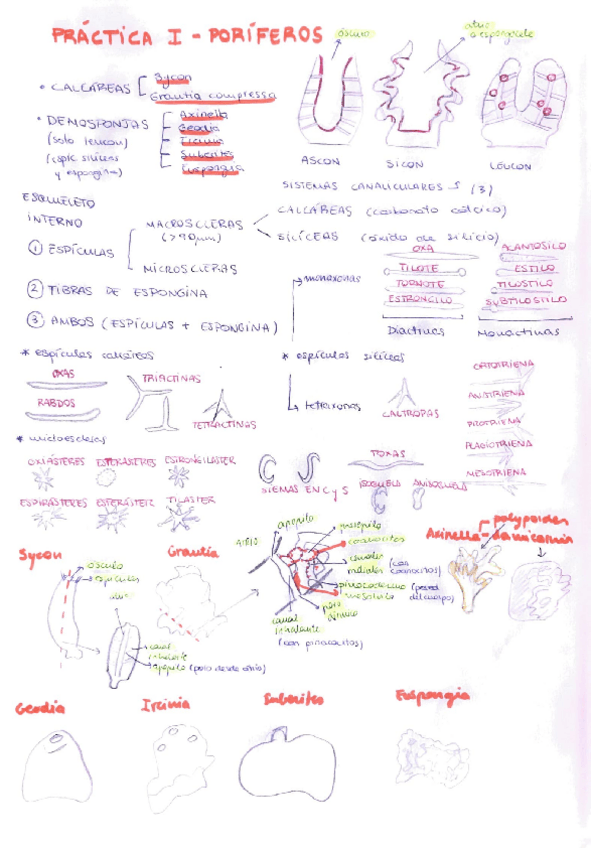 PRÁCTICA I - PORÍFEROS
ósculo
atrio
o espongocele
• CALCÁREAS
Sycon
Grantia compressa
• DEMOSPONJAS
(solo leucon)
Axinella
Geodia
Ircinia
Suberites
Euspongia
ASCON
SICON
LEUCON
SISTEMAS CANALICULARES (3)
ESQUELETO
INTERNO
① ESPÍCULAS
MACROSCLERAS
(>90μm)
MICROSCLERAS
CALCÁREAS (carbonato cálcico)
SILÍCEAS (óxido de silicio)
② FIBRAS DE ESPONGINA
③ AMBOS (ESPÍCULAS + ESPONGINA)
monaxonas
OXA
TILOTE
TORNOTE
ESTRONGILO
Diactinas
ACANTOSTILO
ESTILO
TILOSTILO
SUBTILOSTILO
Monactinas
* espículas calcáreas
OXAS
RABDOS
TRIACTINAS
TETRACTINAS
* espículas silíceas
tetraxonas
CALTROPAS
ORTOTRIENA
ANATRIENA
PROTRIENA
PLAGIOTRIENA
MESOTRIENA
* microescleras
OXIÁSTERES
ESFERASTERES
ESTRONGILASTER
ESPIRÁSTERES
ESTERÁSTER
TILASTER
SIGMAS EN C y S
TOXAS
ISOQUELA
ANISOQUELA
Sycon
ósculo
espículas
atrio
canal
inhalante
apopilo (poro desde atrio)
Grantia
ATRIO
apopilo
prosopilo
coanocitos
canales
radiales (con
coanocitos)
pinacodermo (pared
mesohilo del cuerpo)
poro
dérmico
canal
inhalante
(con pinacocitos)
Axinella
polypoides
damicornis
Geodia
Ircinia
Suberites
Euspongia